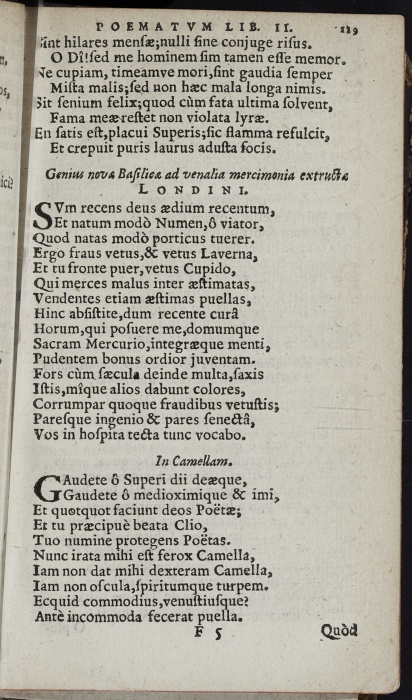 POEMATVM LIB. II. 129
Sint hilares mensæ; nulli sine conjuge risus.
O Dî! sed me hominem sim tamen esse memor.
Ne cupiam, timeamve mori, sint gaudia semper
Mista malis; sed non hæc mala longa nimis.
Sit senium felix; quod cùm fata ultima solvent,
Fama meæ restet non violata lyræ.
En satis est, placui Superis; sic flamma refulcit,
Et crepuit puris laurus adusta focis.
Genius novæ Basilicæ ad venalia mercimonia extructæ
LONDINI.
SVm recens deus ædium recentum,
Et natum modò Numen, ô viator,
Quod natas modò porticus tuerer.
Ergo fraus vetus, & vetus Laverna,
Et tu fronte puer, vetus Cupido,
Qui merces malus inter æstimatas,
Vendentes etiam æstimas puellas,
Hinc absistite, dum recente curâ
Horum, qui posuere me, domumque
Sacram Mercurio, integræque menti,
Pudentem bonus ordior juventam.
Fors cùm sæcula deinde multa, saxis
Istis, mîque alios dabunt colores,
Corrumpar quoque fraudibus vetustis;
Paresque ingenio & pares senectâ,
Vos in hospita tecta tunc vocabo.
In Camellam.
GAudete ô Superi dii deæque,
Gaudete ô medioximique & imi,
Et quotquot faciunt deos Poëtæ;
Et tu præcipuè beata Clio,
Tuo numine protegens Poëtas.
Nunc irata mihi est ferox Camella,
Iam non dat mihi dexteram Camella,
Iam non oscula, spiritumque turpem.
Ecquid commodius, venustiusque?
Antè incommoda fecerat puella.
F 5 Quòd